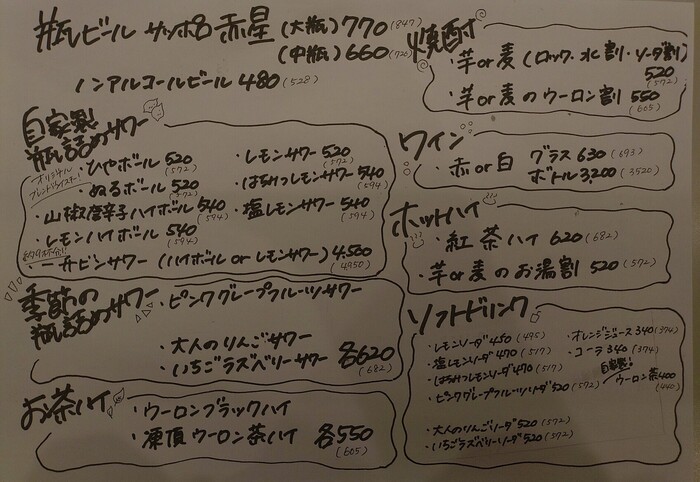 瓶ビール サッポロ 赤星 (大瓶) 770 (847)
(中瓶) 660 (726)
ノンアルコールビール 480 (528)
自家製
瓶詰めサワー
オリジナル
ブレンドウイスキー!
・ひやボール 520 (572)
・ぬるボール 520 (572)
・山椒唐辛子ハイボール 540 (594)
・レモンハイボール 540 (594)
・レモンサワー 520 (572)
・はちみつレモンサワー 540 (594)
・塩レモンサワー 540 (594)
・一升ビンサワー (ハイボール or レモンサワー) 4,500 (4950)
季節の
瓶詰めサワー
・ピンクグレープフルーツサワー
・大人のりんごサワー
・いちごラズベリーサワー 各620 (682)
お茶ハイ
・ウーロンブラックハイ
・凍頂ウーロン茶ハイ 各550 (605)
焼酎
・芋or麦 (ロック・水割・ソーダ割) 520 (572)
・芋or麦のウーロン割 550 (605)
ワイン
・赤or白 グラス 630 (693)
ボトル 3,200 (3520)
ホットハイ
・紅茶ハイ 620 (682)
・芋or麦のお湯割 520 (572)
ソフトドリンク
・レモンソーダ 450 (495)
・塩レモンソーダ 470 (517)
・はちみつレモンソーダ 470 (517)
・ピンクグレープフルーツソーダ 520 (572)
・大人のりんごソーダ 520 (572)
・いちごラズベリーソーダ 520 (572)
・オレンジジュース 340 (374)
・コーラ 340 (374)
自家製!
ウーロン茶 400 (440)